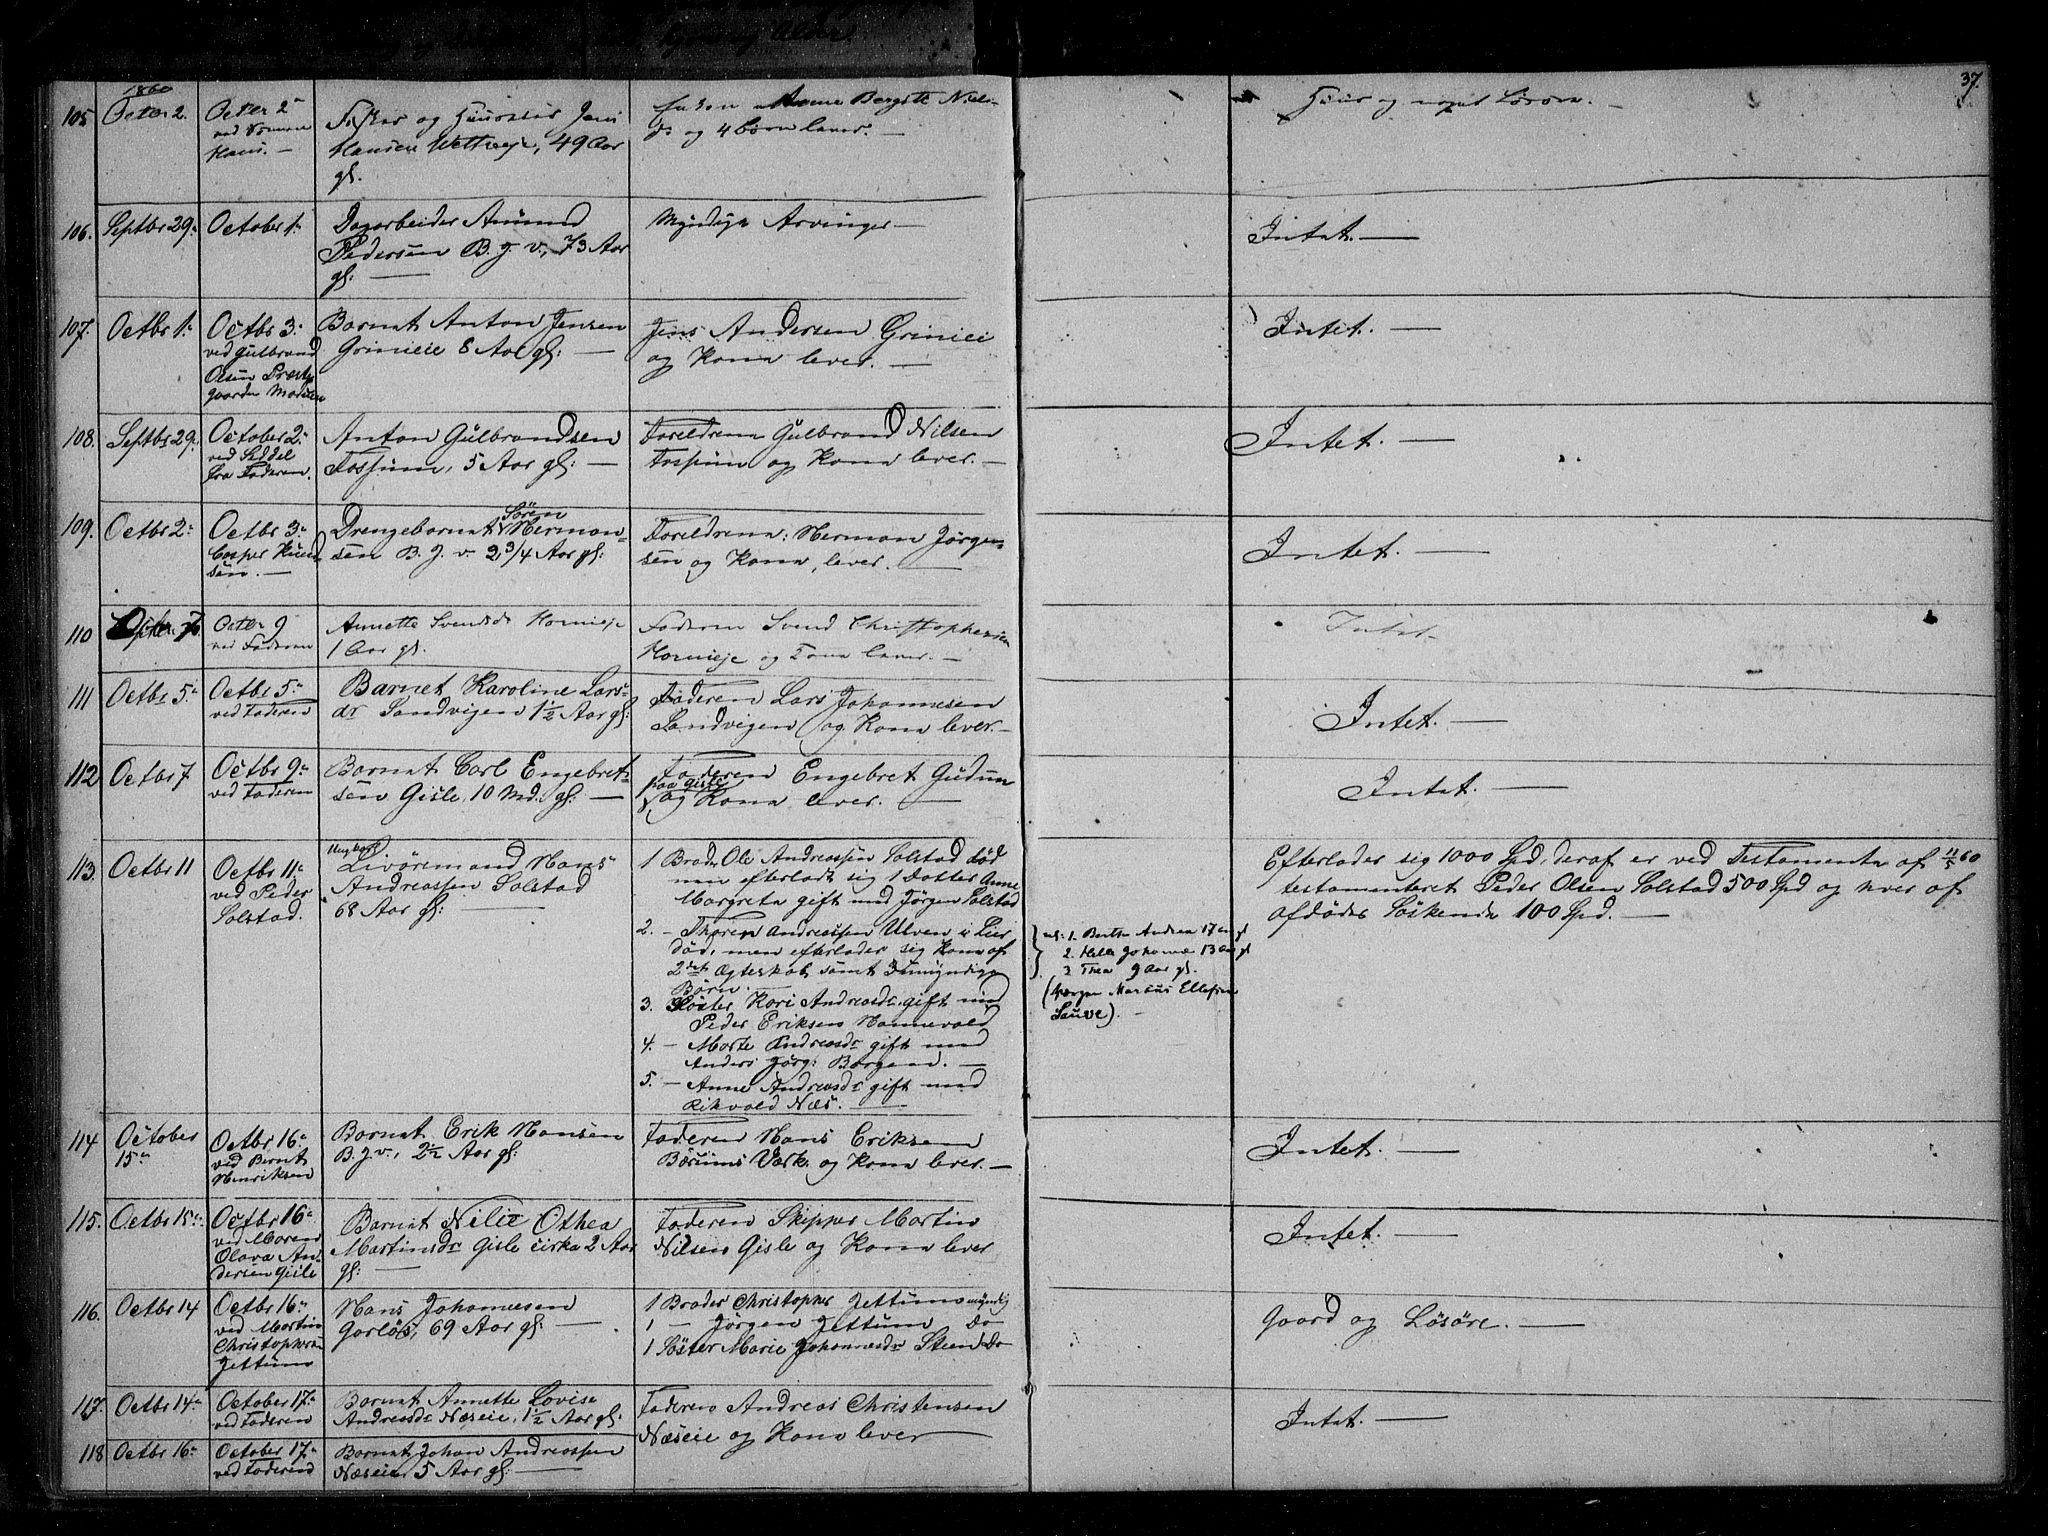 37.
1860
105 Octer 2. Octer 2 Fisker og Huuseier Jens Enken Anne Bergitte Niels- Huus og noget Løsøre. —
ved Hans. — Hansen 49 Aar dr og 4 Børn lever. —
gl.
106. Septbr 29. October 1. Dagarbeider Amund Myndige Arvinger — Intet. —
Pedersen B. J. v., 73 Aar
gl: —
107. Octbr 1. Octbr 3. Barnet Anton Jensen Jens Andersen Griniei Intet. —
ved Gulbrand Grinieie 8 Aar gl: — og Kone lever. —
Olsen Præste
gaarden
108. Septbr 29. October 2. Anton Gulbrandsen Foreldrene Gulbrand Nilsen Intet. —
ved Seddel Fossum, 5 Aar gl: — Fossum og Kone lever. —
fra Faderen.
109. Octbr 2. Octbr 3. Drengebarnet Søren Herman= Foreldrene: Herman Jørgen= Intet. —
Casper Knud- sen B. J. v. 2 3/4 Aar gl: sen og Kone, lever. —
sen. —
110 Octer 9 Annette Svendsdr Hornieje Faderen Svend Christophersen Intet.
ved Faderen 1 Aar gl. Hornieje og Kone lever. —
111 Octbr 5. Octbr 5. Barnet Karoline Lars= Faderen Lars Johannesen Intet. —
ved Faderen dr Sandvigen 1 1/2 Aar gl: Sandvigen og Kone lever. —
112 Octbr 7 Octbr 9. Barnet Carl Engebret= Faderen Engebret Gudum Intet. —
ved Faderen sen Gisle, 10 Md. gl: — paa Gisle og Kone lever. —
113. Octbr 11 Octbr 11. Ungkarl Livøremand Hans
ved Peder Andreassen Solstad
Solstad. 68 Aar gl: —
1 Broder Ole Andreassen Solstad død
men efterladt sig 1 Datter Anne
Margreta gift med Jørgen Solstad
2. — Thoren Andreassen Ulven i Lier
død, men efterlader sig Kone af
2det Ægteskab samt 3 umyndige
Børn. —
3. Søster Kari Andreasdr. gift med
Peder Eriksen Hannevold
4. — Marte Andreasdr gift med
Anders Jørg: Borgen. —
5. — Anne Andreasdr gift med
Rikvald Næs. —
1. Berthe Andrea 17 Aar gl
2. Helle Johanne 13 Aar gl
3 Thea 9 Aar gl.
(Værge Marcus Ellefsen
Sauve). —
Efterlader sig 1000 Spd, deraf er ved Testamente af 11/5 60
testamenteret Peder Olsen Solstad 500 Spd og hver af
afdødes Søskende 100 Spd. —
114 October Octbr 16. Barnet Erik Hansen Faderen Hans Eriksen Intet. —
15. ved Bernt B. J. v., 2 1/2 Aar gl: Bærums Værk. og Kone lever. —
Henriksen
115. Octbr 15. Octbr 16. Barnet Nilie Othea Faderen Skipper Martin Intet. —
ved Maren Martinsdr Gisle cirka 2 Aar Nilsen Gisle og Kone lever
Olava An- gl: —
dersen Gisle
116. Octbr 14 Octbr 16. Hans Johannesen 1 Broder Christopher Jettum myndig Gaard og Løsøre. —
ved Martin Garløs, 69 Aar gl: — 1 — Jørgen Jettum Do
Christophersen 1 Søster Marie Johannesdr Steen Do
Jettum
117. Octbr 14. October 17. Barnet Annette Lovise Faderen Andreas Christensen Intet. —
ved Faderen Andreasdr Næseie, 1 1/2 Aar gl: Næseie og Kone lever
118 Octbr 16. October 17. Barnet Johan Andreassen
ved Faderen Næseie 5 Aar gl: —